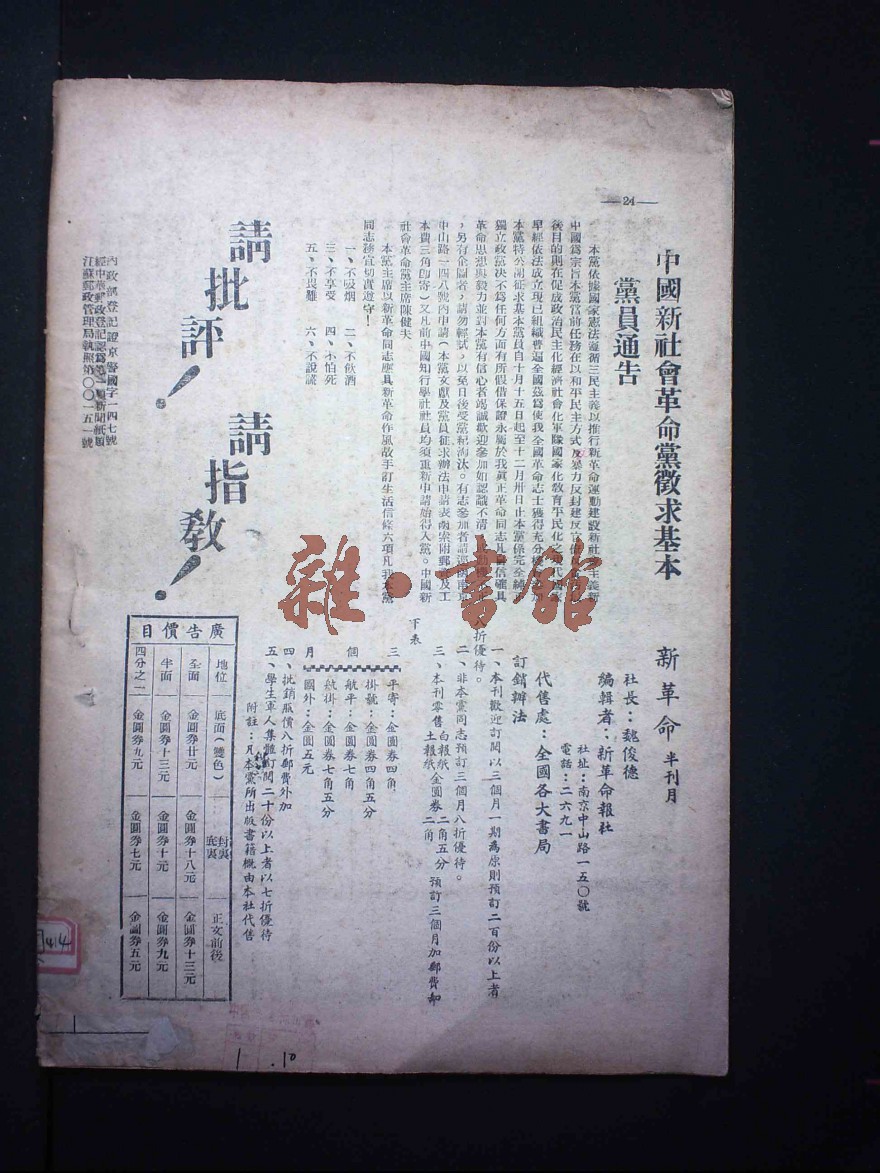 —24—
中國新社會革命黨徵求基本
黨員通告
本黨依據國家憲法遵循三民主義以推行新革命運動建設新社會主義新
中國為宗旨本黨當前任務在以和平民主方式反暴力反封建反官僚
後目的則在促成政治民主化經濟社會化軍隊國家化教育平民化之現代國家
早經依法成立現已組織普遍全國茲為使我全國革命志士獲得充分
本黨特公開征求基本黨員自十月十五日起至十二月卅日止本黨係完全純
獨立政黨決不為任何方面有所假借保證永屬於我真正革命同志凡篤信確具
革命思想與毅力並對本黨有信心者竭誠歡迎參加如認識不清
，另有企圖者，請勿輕試，以免日後受黨紀淘汰。有志參加者請逕函南京
中山路一四八號內申請（本黨文獻及黨員征求辦法申請表函索附郵費及工
本費三角即寄）又凡前中國知行學社社員均須重新申請始得入黨。中國新
社會革命黨主席陳健夫
本黨主席以新革命同志應具新革命作風故手訂生活信條六項凡我本黨
同志務宜切實遵守！
一、不吸烟　二、不飲酒
三、不享受　四、不怕死
五、不畏難　六、不說謊
請批評！　請指教！
內政部登記證京警國字一四七號
經中華郵政登記認為第一類新聞紙類
江蘇郵政管理局執照第〇〇一五一號
新革命　半月刊
社長：魏俊德
編輯者：新革命報社
社址：南京中山路一五〇號
電話：二二六九一
代售處：全國各大書局
訂銷辦法
一、本刊歡迎訂閱以三個月一期為原則預訂二百份以上者
八折優待。
二、非本黨同志預訂三個月八折優待。
三、本刊零售白報紙金圓券二角五分 土報紙金圓券二角 預訂三個月加郵費如
下表
三個月
平寄：金圓券四角
掛號：金圓券四角五分
航平：金圓券七角
航掛：金圓券七角五分
國外：金圓五元
四、批銷照價八折郵費外加
五、學生軍人集體訂閱二十份以上者以七折優待
附註：凡本黨所出版書籍概由本社代售
廣告價目
地位　底面（雙色）　封裏底裏　正文前後
全面　金圓券廿元　金圓券十八元　金圓券十三元
半面　金圓券十三元　金圓券十元　金圓券九元
四分之一　金圓券九元　金圓券七元　金圓券五元
雜·書館
414
1
1.10